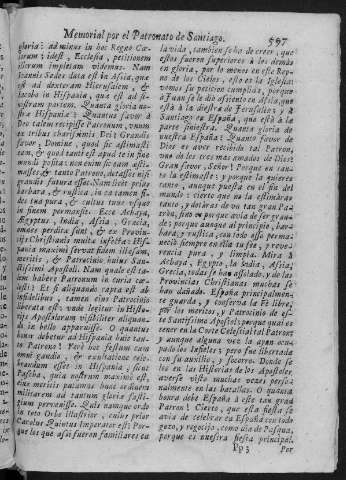 Memorial por el Patronato de Santiago. 597
gloria: ad minus in hoc Regno Cœ-
lorum: idest, Ecclesia, petitionem
illorum impletam videmus. Nam
Ioannis Sedes data est in Asia, quæ
est ad dexteram Ierusalem, &
Iacobo in Hispania, quæ est ad si-
nistram partem. Quanta gloria no-
stræ Hispaniæ! Quantus favor à
Cælo talem recipisse Patronum, unum
ex tribus charissimis Dei! Grandis
favor, Domine, quod sic æstimasti
eam, & quod tanti est apud te in fine
mundi posita: non enim sic eam æsti-
masses, & tanto Patrono, detasses nisi
grandis futura esset. Nam licet prius
barbara, & rustica, in ea tamen fi-
des tua pura, & cultus tuus usque
in finem permansit. Ecce Achaya,
Egyptus, India, Asia, Græcia,
omnes perdita sunt, & ex Provin-
cijs Christianis multæ infectæ: His-
pania maximè servat fidem illesam,
meritis, & Patrocinio huius San-
ctissimi Apostoli. Nam quale est ta-
lem habere Patronum in curia cæ-
lesti? Et si aliquando capta est ab
infidelibus, tamen eius Patrocinio
liberata est: unde legitur in Histo-
rijs Apostolorum visibiliter aliquan-
do in bello apparuisse. O quantus
honor debetur ab Hispania huic tan-
to Patrono! Pero hoc festum cum
omni gaudio, & exultatione cele-
brandum esset in Hispania, sicut
Pascha, quia nostrum maximè est,
eius meritis putamus hunc ordinem
militarem ad tantum gloriæ fasti-
gium pervenisse. Quis namque ordo
in toto Orbe illustrior, cuius prior
Carolus Quintus Imperator est: Por-
que los que assi fueron familiares en
la vida, tambien se ha de creer, que
estos fueron superiores à los demàs
en gloria, por lo menos en este Rey-
no de los Cielos, esto es la Iglesia:
vemos su peticion cumplida, porque
à Juan se le diò assiento en Asia, que
està à la diestra de Jerusalen; y à
Santiago en España, que està à la
parte siniestra. Quanta gloria de
nuestra España! Quanto favor de
Dios es aver recibido tal Patron,
uno de los tres mas amados de Dios!
Gran Favor, Señor! Porque en tan-
to la estimaste: y porque la quieres
tanto, aunque puesta en el fin del
mundo: cierto que no la estimàras
tanto, y dotàras de un tan gran Pa-
tron, sino es porque avia de ser gran-
de: porque aunque al principio, bar-
bara, y rustica, con todo esso perma-
neciò siempre en ella tu fee, y reve-
rencia pura, y limpia. Mira à
Achaya, Egypto, la India, Asia, y
Grecia, todas se han assolado, y de las
Provincias Christianas muchas se
han dañado. España principalmente
se guarda, y conserva la Fè libre,
por los meritos, y Patrocinio de es-
te Santissimo Apostol; porque qual es
tener en la Corte Celestial tal Patron;
y aunque alguna vez la ayan ocu-
pado los Infieles, pero fue libertada
con su auxilio, y socorro. Donde se
lee en las Historias de los Apostoles,
averse visto muchas veces perso-
nalmente en las batallas. O quanta
honra debe España à este tan gran
Patron! Cierto, que esta fiesta se
avia de celebrar en España con todo
gozo, y regocijo, como dia de Pasqua,
porque es nuestra fiesta principal.
Pp 3
Por